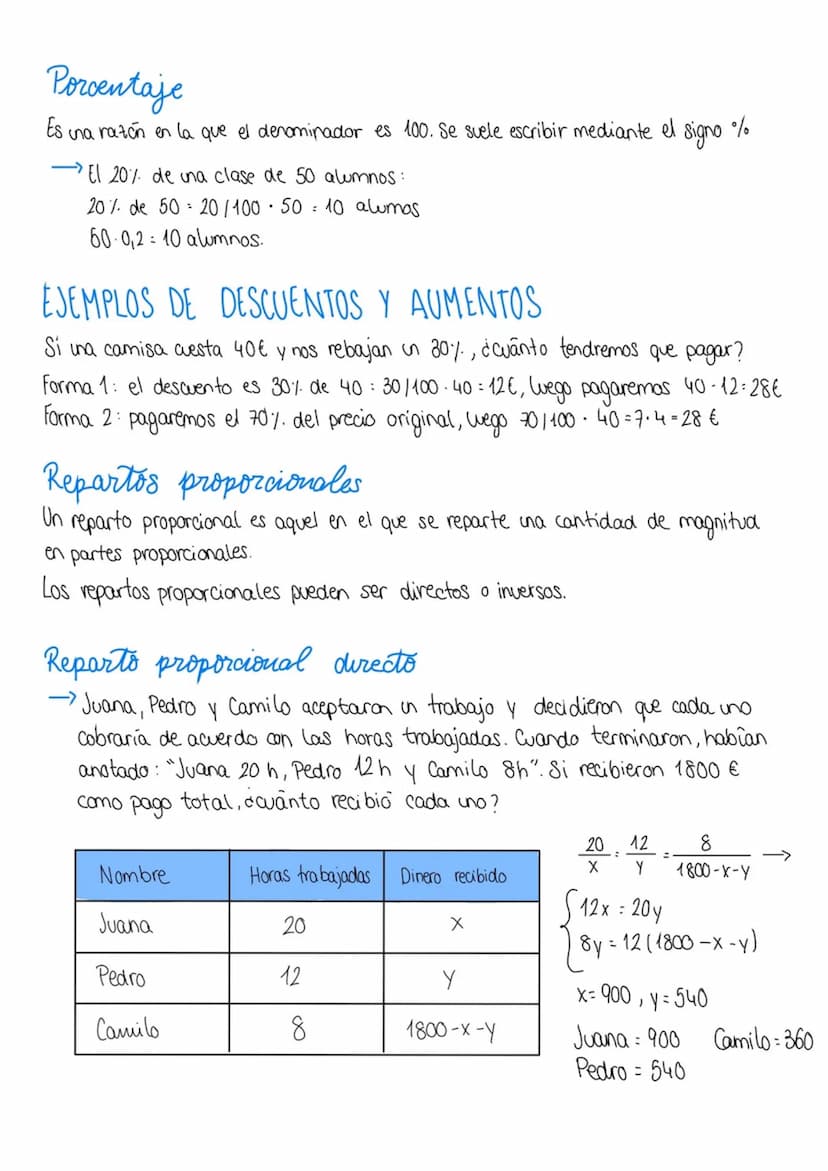 Porcentaje
Es una razón en la que el denominador es 100. Se suele escribir mediante el signo %
→ El 20% de una clase de 50 alumnos:
20% de 50 = 20/100 · 50 = 10 alumos
50·0,2 = 10 alumnos.
EJEMPLOS DE DESCUENTOS Y AUMENTOS
Si una camisa cuesta 40€ y nos rebajan un 30%, ¿cuánto tendremos que pagar?
Forma 1: el descuento es 30% de 40 = 30/100 · 40 = 12€, luego pagaremos 40-12=28€
Forma 2: pagaremos el 70% del precio original, luego 70/100 · 40 = 7·4 = 28 €
Repartos proporcionales
Un reparto proporcional es aquel en el que se reparte una cantidad de magnitud
en partes proporcionales.
Los repartos proporcionales pueden ser directos o inversos.
Reparto proporcional directo
→ Juana, Pedro y Camilo aceptaron un trabajo y decidieron que cada uno
cobraría de acuerdo con las horas trabajadas. Cuando terminaron, habían
anotado: "Juana 20 h, Pedro 12h y Camilo 8h". Si recibieron 1800 €
como pago total, ¿cuánto recibió cada uno?
Nombre Horas trabajadas Dinero recibido
Juana 20 x
Pedro 12 y
Camilo 8 1800-x-y
20/x = 12/y = 8/1800-x-y →
{ 12x = 20y
8y = 12(1800-x-y)
x=900, y=540
Juana = 900 Camilo = 360
Pedro = 540